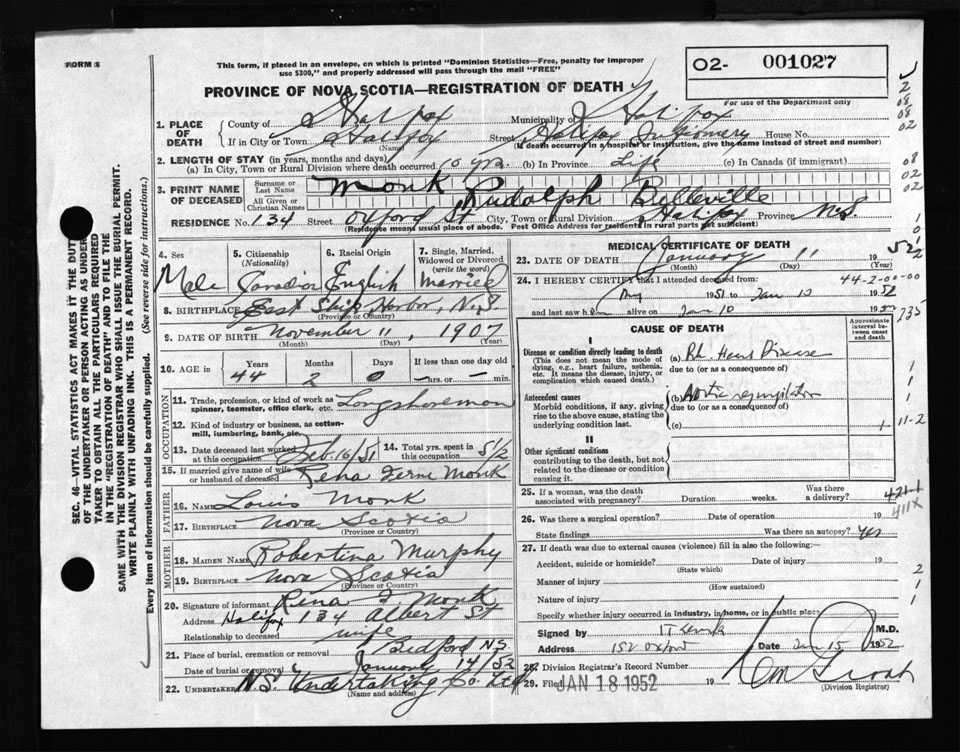 FORM 6
This form, if placed in an envelope, on which is printed "Dominion Statistics—Free, penalty for improper
use $300," and properly addressed will pass through the mail "FREE"
O2- 001027
PROVINCE OF NOVA SCOTIA—REGISTRATION OF DEATH
For use of the Department only
1. PLACE OF DEATH
County of Halifax Municipality of Halifax
If in City or Town Halifax Street Halifax Infirmary House No.
(Name) (If death occurred in a hospital or institution, give the name instead of street and number)
2. LENGTH OF STAY (in years, months and days)
(a) In City, Town or Rural Division where death occurred 10 yrs. (b) In Province Life (c) In Canada (if immigrant)
3. PRINT NAME OF DECEASED
Surname or Last Name Monk
All Given or Christian Names Rudolph Belleville
RESIDENCE No. 134 Street Oxford St City, Town or Rural Division Halifax Province N.S.
(Residence means usual place of abode. Post Office Address for residents in rural parts not sufficient)
4. Sex Male
5. Citizenship (Nationality) Canadian
6. Racial Origin English
7. Single, Married, Widowed or Divorced (write the word) Married
8. BIRTHPLACE East Ship Harbor, N.S.
(Province or Country)
9. DATE OF BIRTH November 11, 1907
(Month) (Day) (Year)
10. AGE in Years Months Days If less than one day old
44 2 0 —hrs. or — min.
OCCUPATION
11. Trade, profession or kind of work as spinner, teamster, office clerk, etc. Longshoreman
12. Kind of industry or business, as cotton-mill, lumbering, bank, etc.
13. Date deceased last worked at this occupation Feb. 16/51
14. Total yrs. spent in this occupation 5 1/2
15. If married give name of wife or husband of deceased Rena Ferne Monk
FATHER
16. Name Louis Monk
17. BIRTHPLACE Nova Scotia
(Province or Country)
MOTHER
18. MAIDEN NAME Robertina Murphy
19. BIRTHPLACE Nova Scotia
(Province or Country)
20. Signature of informant Rena F Monk
Address Halifax 134 Albert St
Relationship to deceased wife
21. Place of burial, cremation or removal Bedford N.S.
Date of burial or removal January 14/52
22. UNDERTAKER N.S. Undertaking Co. Ltd
(Name and address)
MEDICAL CERTIFICATE OF DEATH
23. DATE OF DEATH January 11 1952
(Month) (Day) (Year)
24. I HEREBY CERTIFY that I attended deceased from: 44-2-00-00
1951 to Jan 10 1952
and last saw h alive on Jan 10 1952
735
CAUSE OF DEATH
Approximate interval between onset and death
I
Disease or condition directly leading to death
(This does not mean the mode of dying, e.g., heart failure, asthenia, etc. It means the disease, injury, or complication which caused death.)
(a) Rh. Heart Disease
due to (or as a consequence of)
Antecedent causes
Morbid conditions, if any, giving rise to the above cause, stating the underlying condition last.
(b) Aortic regurgitation
due to (or as a consequence of)
(c)
11-2
II
Other significant conditions
contributing to the death, but not related to the disease or condition causing it.
25. If a woman, was the death associated with pregnancy? Duration weeks. Was there a delivery?
421-1
411X
26. Was there a surgical operation? Date of operation 19
State findings Was there an autopsy? Yes
27. If death was due to external causes (violence) fill in also the following:—
Accident, suicide or homicide? Date of injury 19
(State which)
Manner of injury
(How sustained)
Nature of injury
Specify whether injury occurred in industry, in home, or in public place
Signed by M.D.
Address 152 Oxford Date Jan 15 1952
28. Division Registrar's Record Number
29. Filed JAN 18 1952 19
(Division Registrar)
SEC. 46—VITAL STATISTICS ACT MAKES IT THE DUTY
OF THE UNDERTAKER OR PERSON ACTING AS UNDER-
TAKER TO OBTAIN ALL THE PARTICULARS REQUIRED
IN THE "REGISTRATION OF DEATH" AND TO FILE THE
SAME WITH THE DIVISION REGISTRAR WHO SHALL ISSUE THE BURIAL PERMIT.
WRITE PLAINLY WITH UNFADING INK. THIS IS A PERMANENT RECORD.
Every item of information should be carefully supplied. (See reverse side for instructions.)